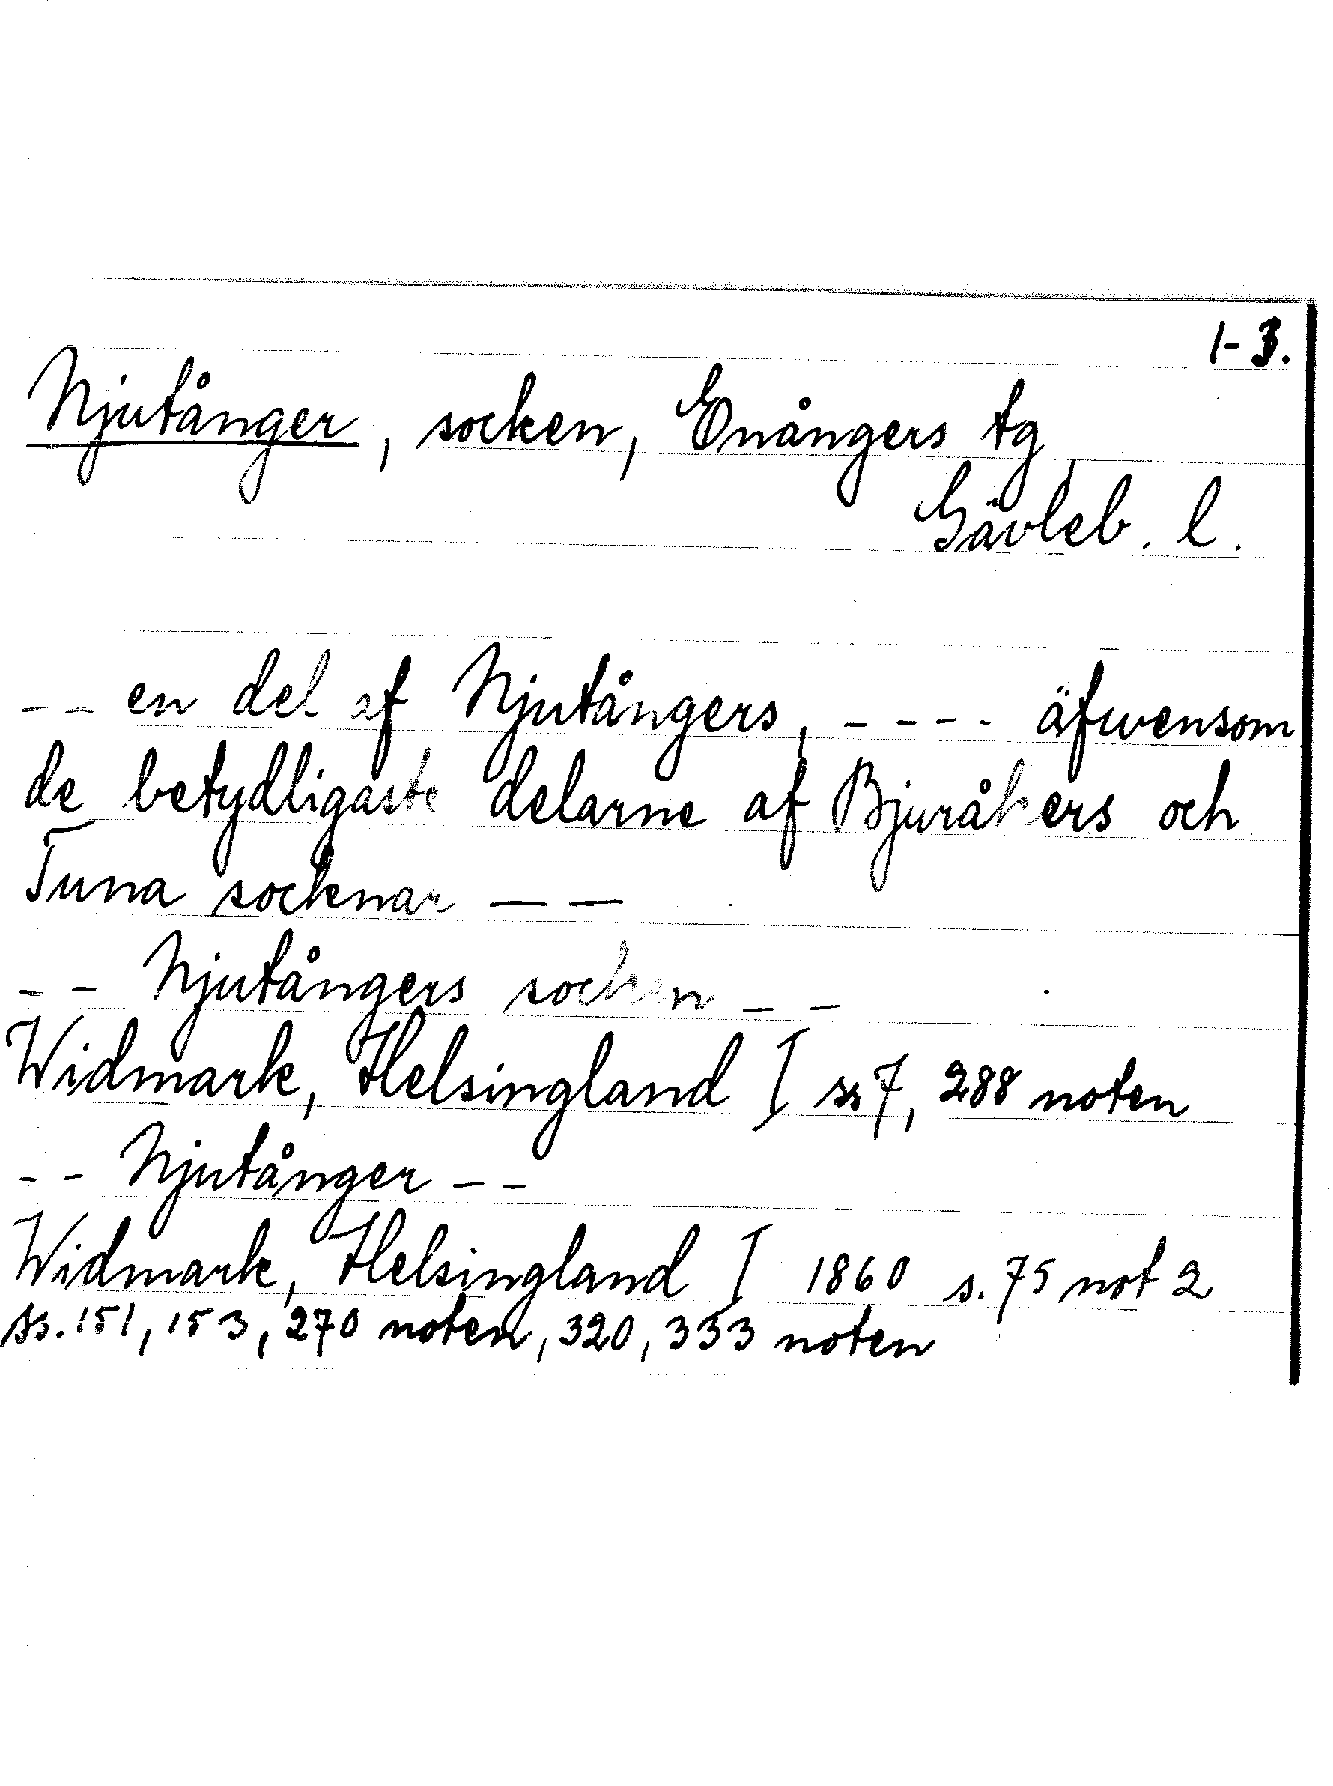 1-3.
Njutånger, socken, Enångers tg
Gävleb. l.
-- en del af Njutångers, ---- äfwensom
de betydligaste delarne af Bjuråkers och
Tuna socknar --
-- Njutångers socken --
Widmark, Helsingland I ss 7, 288 noten
-- Njutånger --
Widmark, Helsingland I 1860 s. 75 not 2
ss. 151, 153, 270 noten, 320, 333 noten